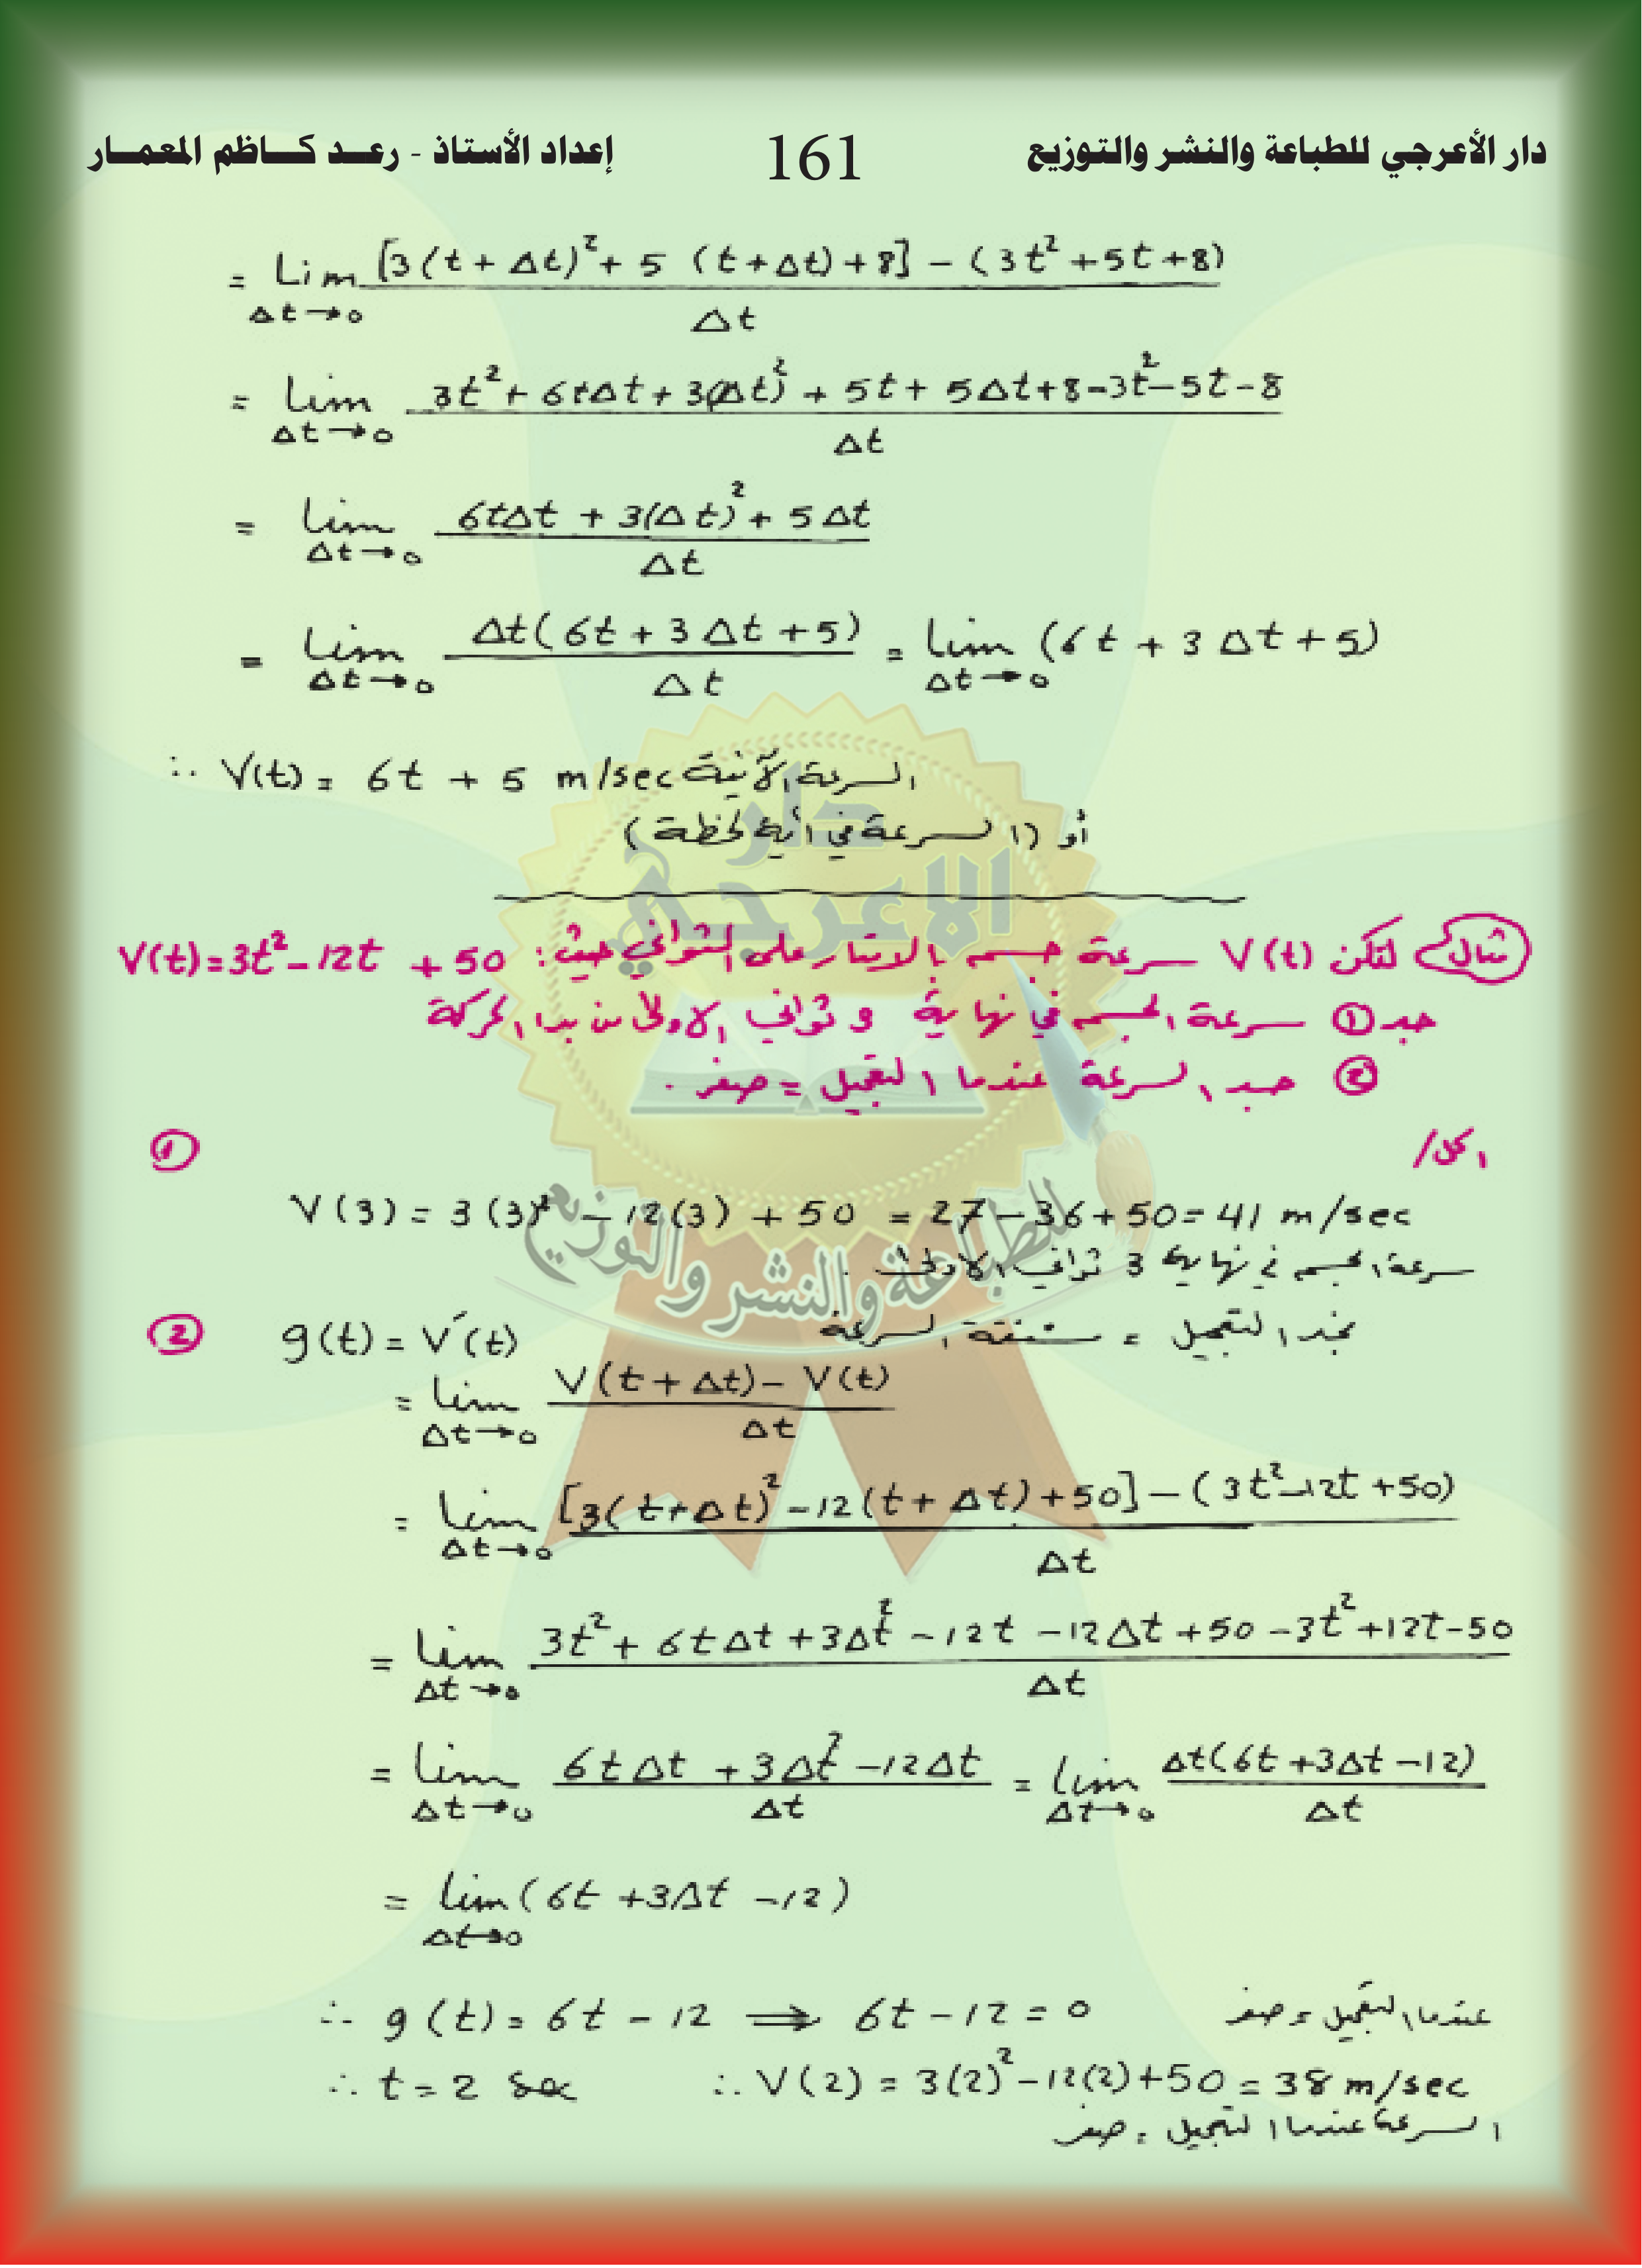 دار الأعرجي للطباعة والنشر والتوزيع 161 إعداد الأستاذ - رعـد كـاظم المعمـار
= Lim Δt→0 [3(t+Δt)² + 5 (t+Δt)+8] - (3t²+5t+8) / Δt
= lim Δt→0 3t²+6tΔt+3(Δt)²+5t+5Δt+8-3t²-5t-8 / Δt
= lim Δt→0 6tΔt + 3(Δt)² + 5Δt / Δt
= lim Δt→0 Δt(6t+3Δt+5) / Δt = lim Δt→0 (6t+3Δt+5)
∴ V(t) = 6t + 5 m/sec السرعة الآنية
أو (السرعة في أية لحظة)
مثال لتكن V(t) سرعة جسم بالامتار على الثواني حيث: V(t)=3t²-12t+50
جد ① سرعة الجسم في نهاية و ثواني الاولى من بدء الحركة
② جد السرعة عندما التعجيل = صفر .
الحل/
①
V(3) = 3(3)² - 12(3) + 50 = 27 - 36 + 50 = 41 m/sec
سرعة الجسم في نهاية 3 ثواني الاولى .
② g(t) = V′(t) نجد التعجيل = مشتقة السرعة
= lim Δt→0 V(t+Δt) - V(t) / Δt
= lim Δt→0 [3(t+Δt)² - 12(t+Δt)+50] - (3t²-12t+50) / Δt
= lim Δt→0 3t²+6tΔt+3Δt²-12t-12Δt+50-3t²+12t-50 / Δt
= lim Δt→0 6tΔt+3Δt²-12Δt / Δt = lim Δt→0 Δt(6t+3Δt-12) / Δt
= lim Δt→0 (6t+3Δt-12)
∴ g(t) = 6t - 12 ⟹ 6t - 12 = 0 عندما التعجيل = صفر
∴ t = 2 sec ∴ V(2) = 3(2)² - 12(2)+50 = 38 m/sec
السرعة عندما التعجيل = صفر
دار
الاعرجي
للطباعة والنشر والتوزيع